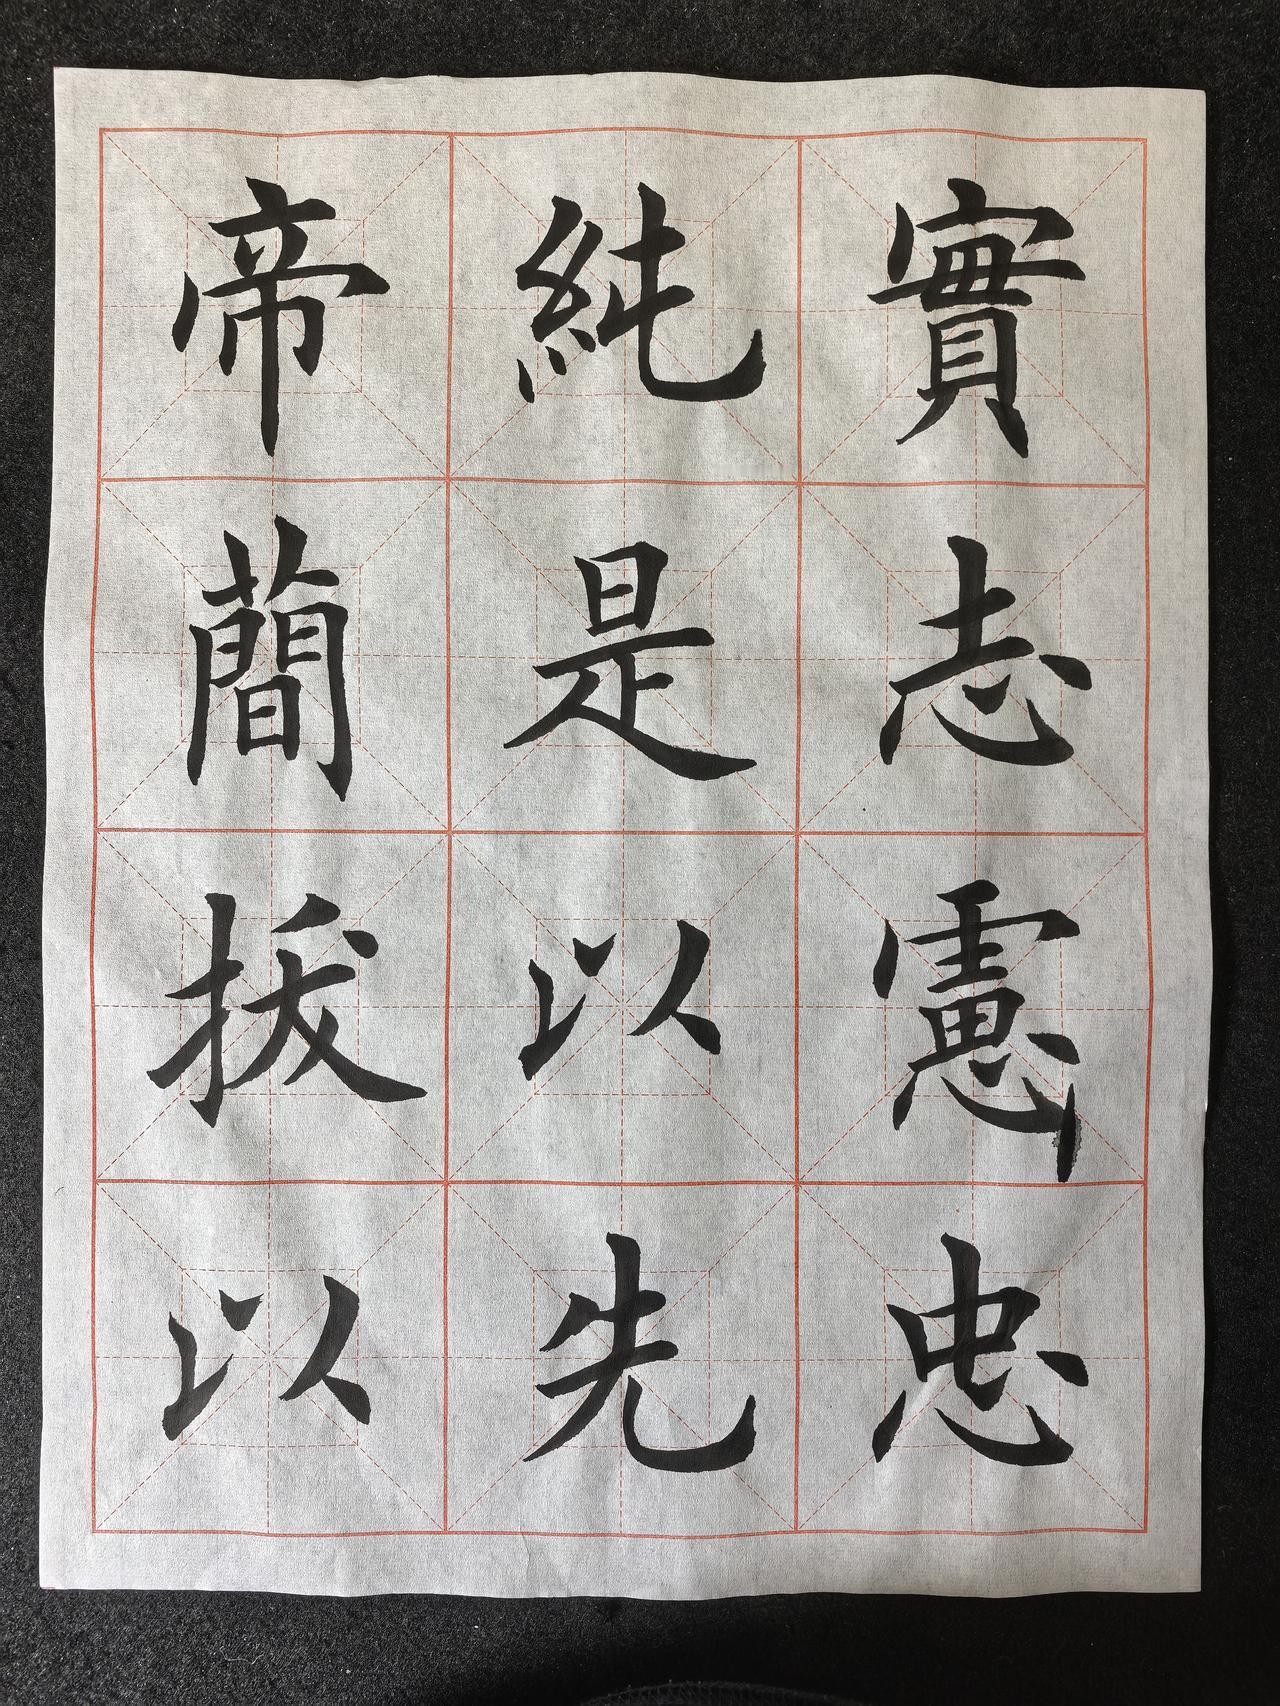 實志慮忠
純是以先
帝蕳拔以